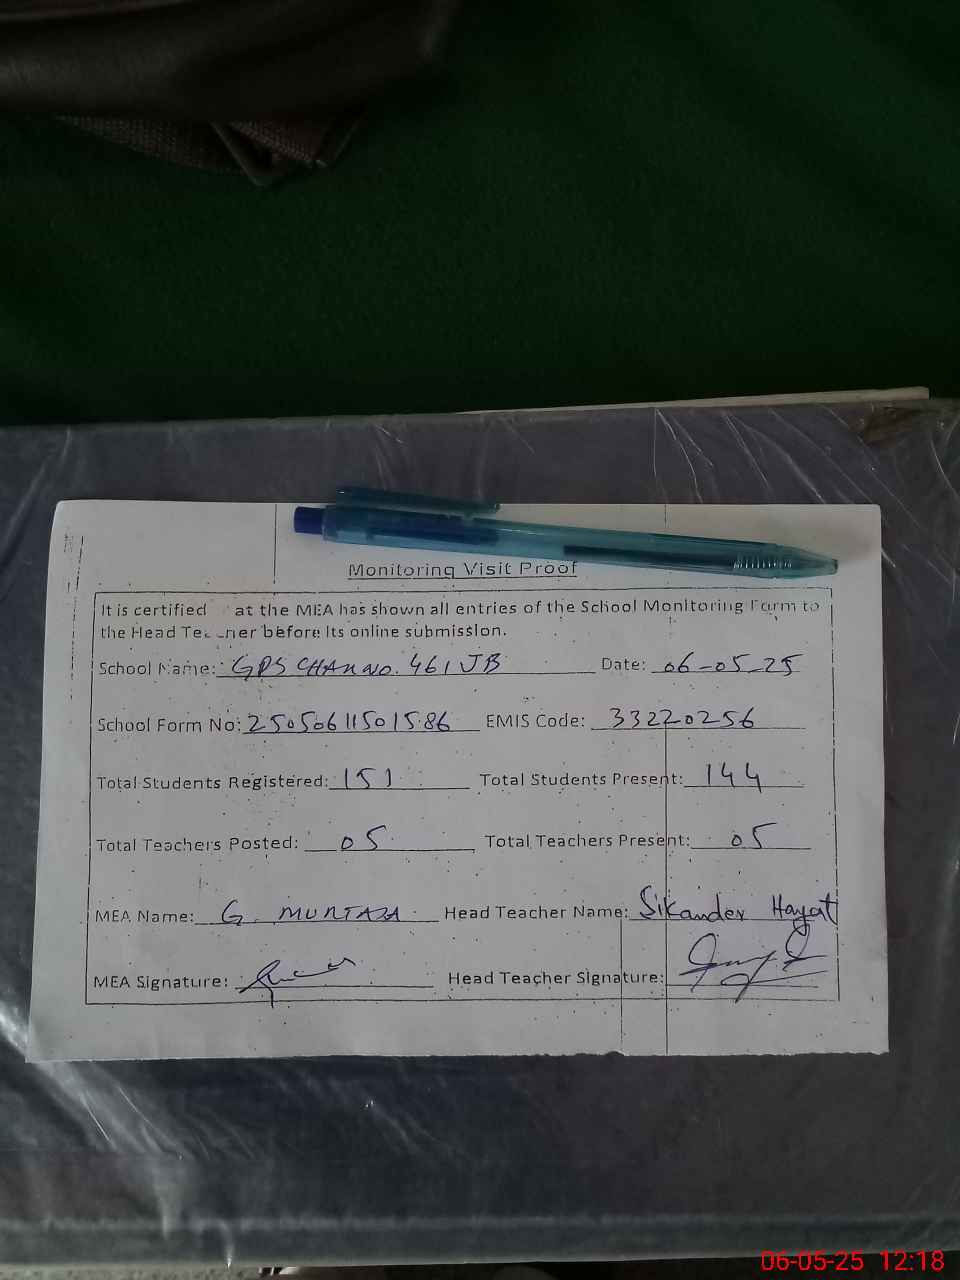 Monitoring Visit Proof
It is certified at the MEA has shown all entries of the School Monitoring Form to
the Head Teacher before Its online submission.
School Name: GPS CHAK NO. 461 JB Date: 06-05-25
School Form No: 25050611501586 EMIS Code: 33220256
Total Students Registered: 151 Total Students Present: 144
Total Teachers Posted: 05 Total Teachers Present: 05
MEA Name: G. MURTAZA Head Teacher Name: Sikander Hayat
MEA Signature: Head Teacher Signature:
06-05-25 12:18